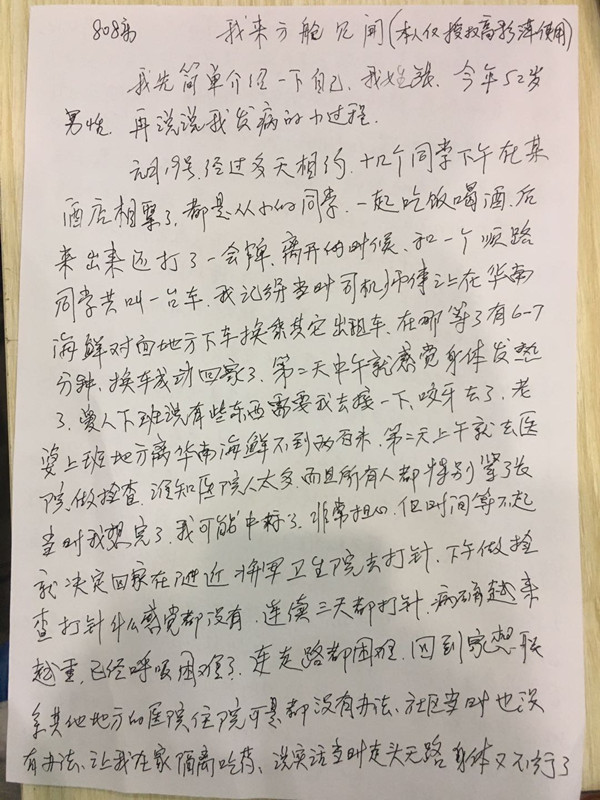 808房 我来方舱见闻(本人仅授权高影萍使用)
我先简单介绍一下自己,我姓张,今年52岁
男性,再说说我发病的小过程.
元月19号,经过多天相约,十几个同学下午在某
酒店相聚了,都是从小的同学,一起吃饭喝酒,后
来出来还打了一会牌,离开的时候,和一个顺路
同学共叫一台车,我记得当时司机师傅让在华南
海鲜对面地方下车换乘其它出租车,在那等了有6-7
分钟,换车成功回家了,第二天中午就感觉身体发热
了,爱人下班说有些东西需要我去接一下,咬牙去了,老
婆上班地方离华南海鲜不到两百米,第二天上午就去医
院做检查,谁知医院人太多,而且所有人都特别紧张
当时我想完了,我可能中标了,非常担心,但时间等不起
就决定回家在附近将军卫生院去打针,下午做检
查打针什么感觉都没有,连续三天都打针,病情越来
越重,已经呼吸困难了,连走路都困难,回到家想联
系其他地方的医院住院可是都没有办法,社区当时也没
有办法,让我在家隔离吃药,说实话当时走头无路身体又不行了